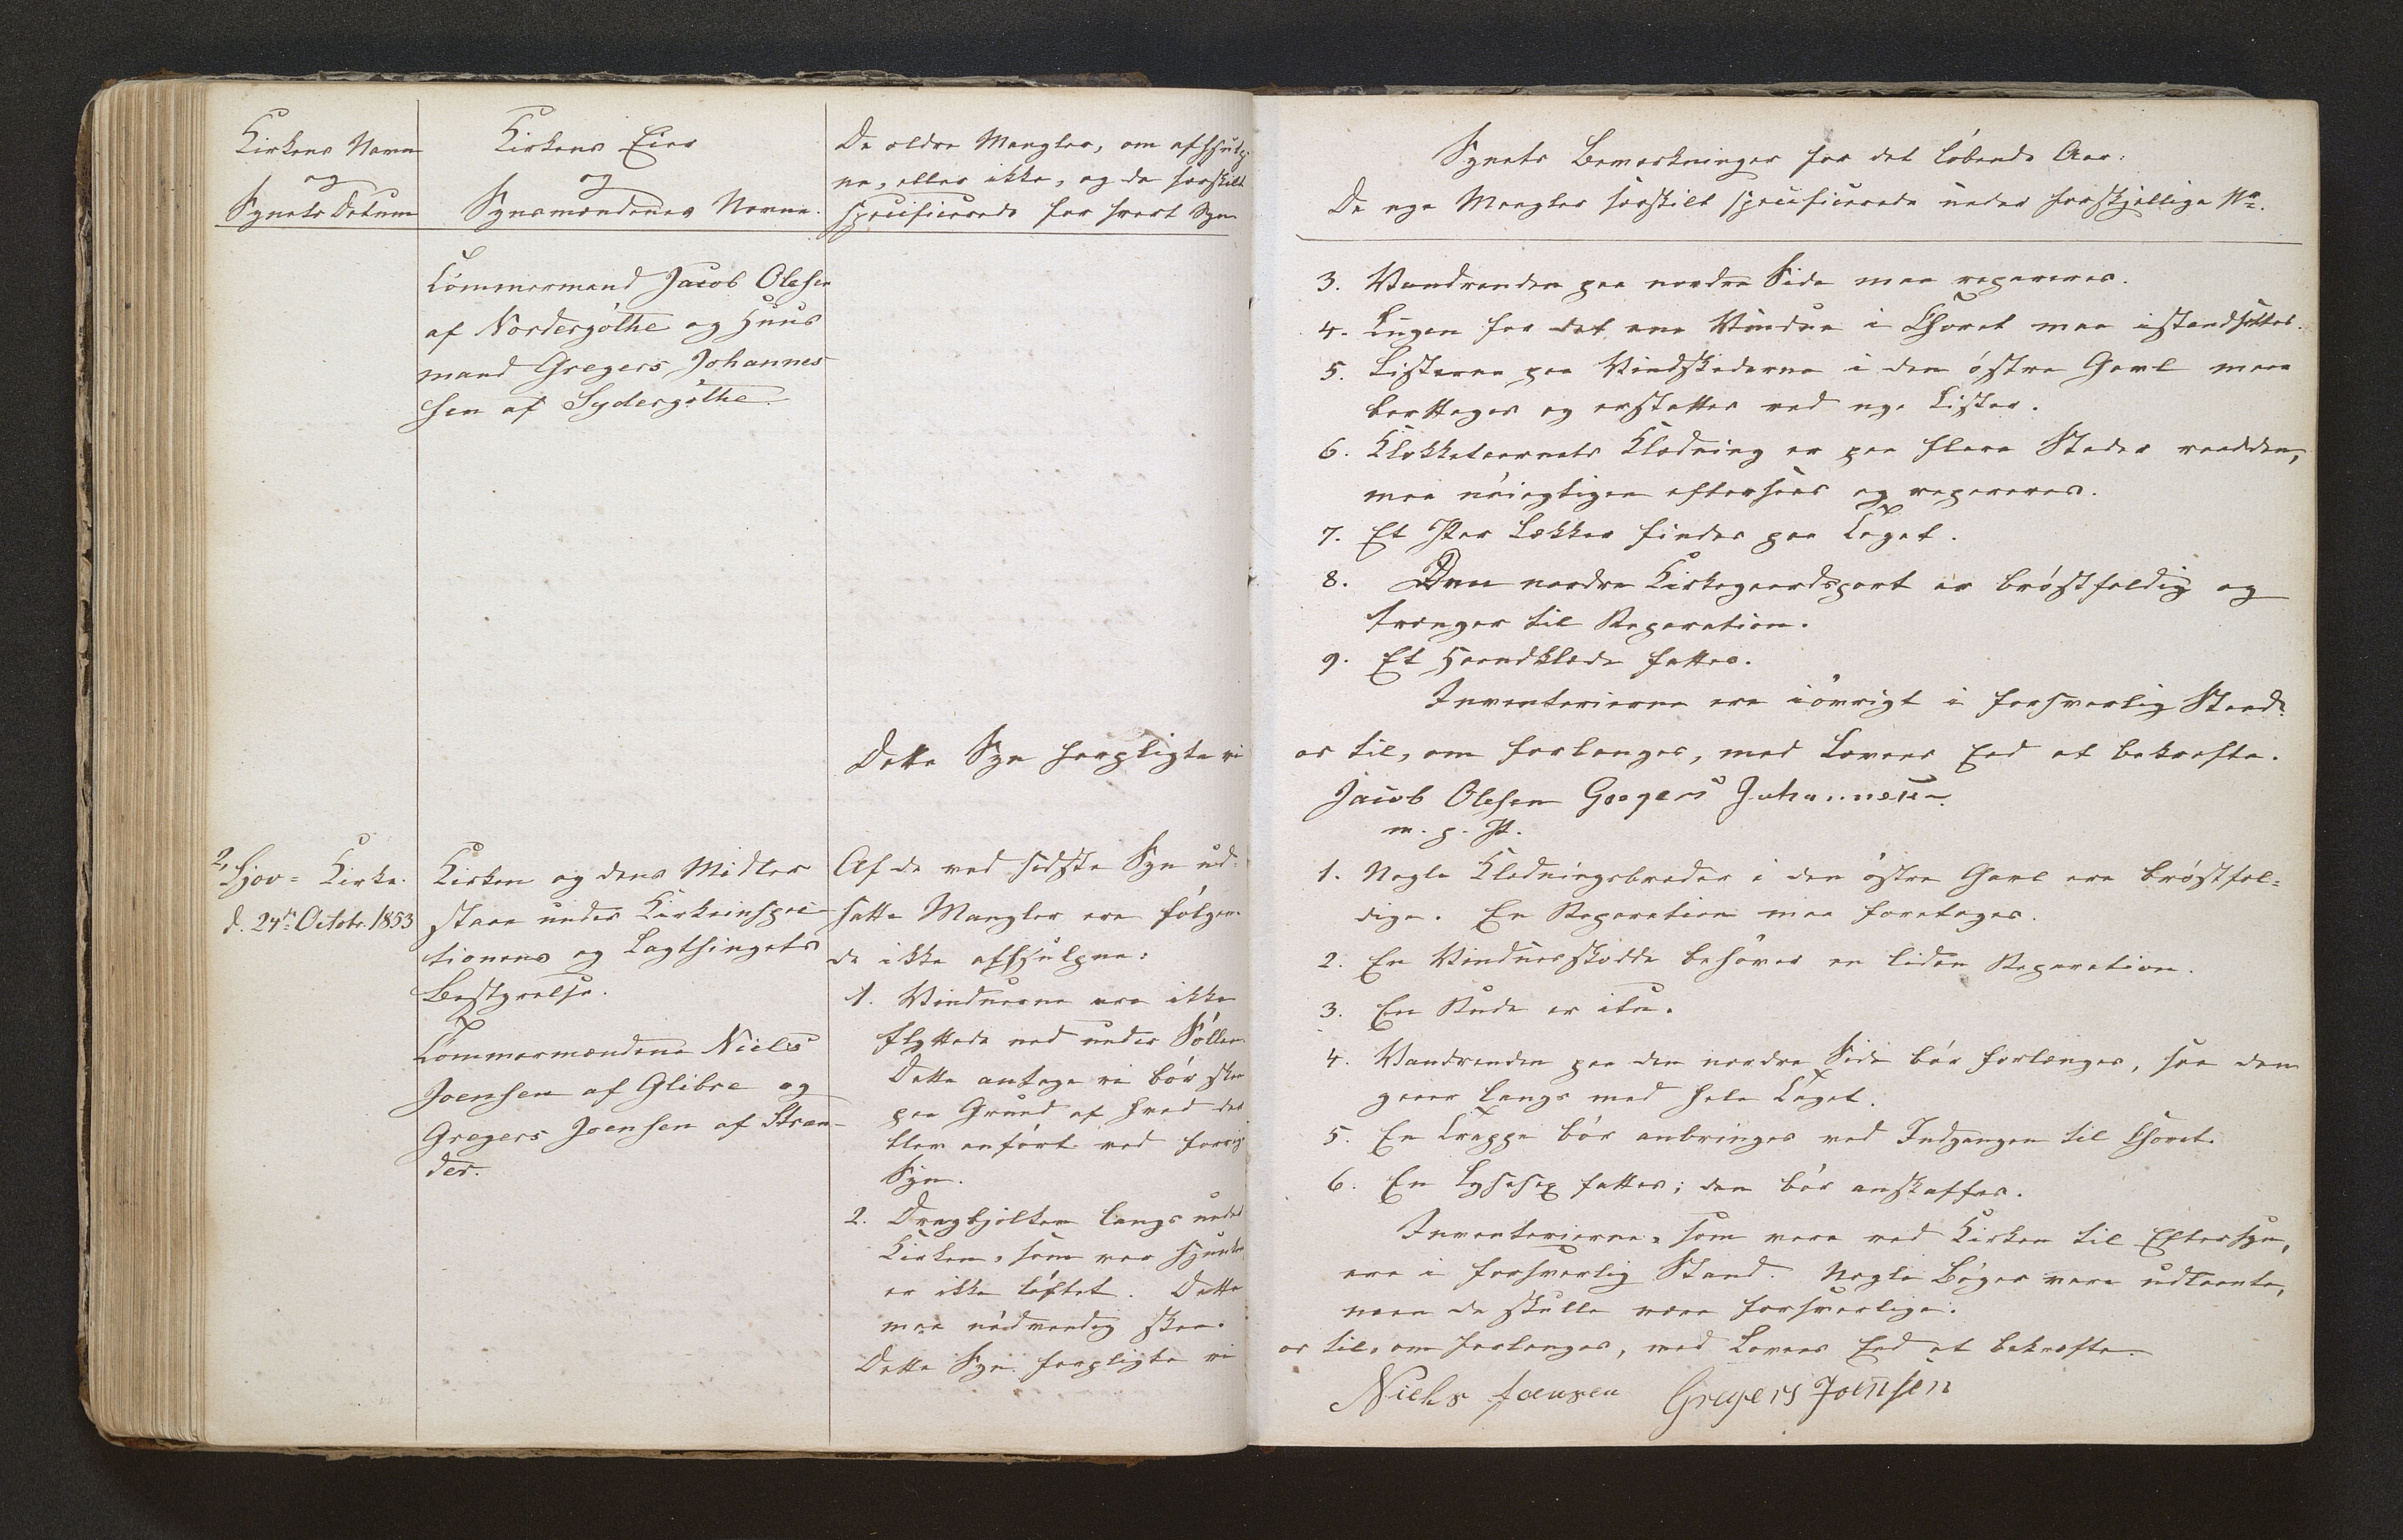 Kirkens Navn
og
Synets Datum
Kirkens Eier
og
Synsmændenes Navne.
De ældre Mangler, om afhjulp-
ne, eller ikke, og da særskilt
specificerede for hvert Syn
Tömmermand Jacob Olesen
af Nordergöthe og Huus
mand Gregers Johannes
sen af Sydergöthe.
Dette Syn forpligte vi
2, Hjov= Kirke.
d. 24de Octobr. 1853
Kirken og dens Midler
staae under Kirkeinspec
tionens og Lagthingets
Bestyrelse.
Tömmermændene Niels
Joensen af Glibre og
Gregers Joensen af Stræn-
der.
Af de ved sidste Syn ud-
satte Mangler ere fölgen-
de ikke afhjulpne:
1. Vinduerne ere ikke
flyttede ned under
Dette antage vi bör skee
paa Grund af hvad der
blev anfört ved forrige
Syn.
2. Dragbjelken langs under
Kirken, som var sjunken
er ikke löftet. Dette
maa nödvendig skee.
Dette Syn forpligte vi
Synets Bemærkninger for det löbende Aar:
De nye Mangler særskilt specificerede under forskjellige No.
3. Vandrenden paa nordre Side maa repareres.
4. Lugen for det ene Vindue i Choret maa istandsættes.
5. Listerne paa Vindskederne i den östre Gavl maa
borttages og erstattes ved nye Lister.
6. Klokketaarnets Klædning er paa flere Steder raadden,
maa nöiagtigen eftersees og repareres.
7. Et Par Lækker findes paa Taget.
8. Den nordre Kirkegaardsport er bröstfældig og
trænger til Reparation.
9. Et Haandklæde fattes.
Inventarierne ere iövrigt i forsvarlig Stand.
os til, om forlanges, med Lovens Eed at bekræfte.
Jacob Olesen Gregers Johannesen
m. p. P.
1. Nogle Klædningsbræder i den östre Gavl ere bröstfæl-
dige. En Reparation maa foretages.
2. En Vinduesskodde behöver en liden Reparation.
3. En Rude er itu.
4. Vandrenden paa den nordre Side bör forlænges, saa den
gaaer langs med hele Taget.
5. En Trappe bör anbringes ved Indgangen til Choret.
6. En Lysesax fattes; den bör anskaffes.
Inventarierne, som vare ved Kirken til Eftersyn,
ere i forsvarlig Stand. Nogle Böger vare udlaante,
men de skulle være forsvarlige.
os til, om forlanges, med Lovens Eed at bekræfte.
Niels Joensen Gregers Joensen